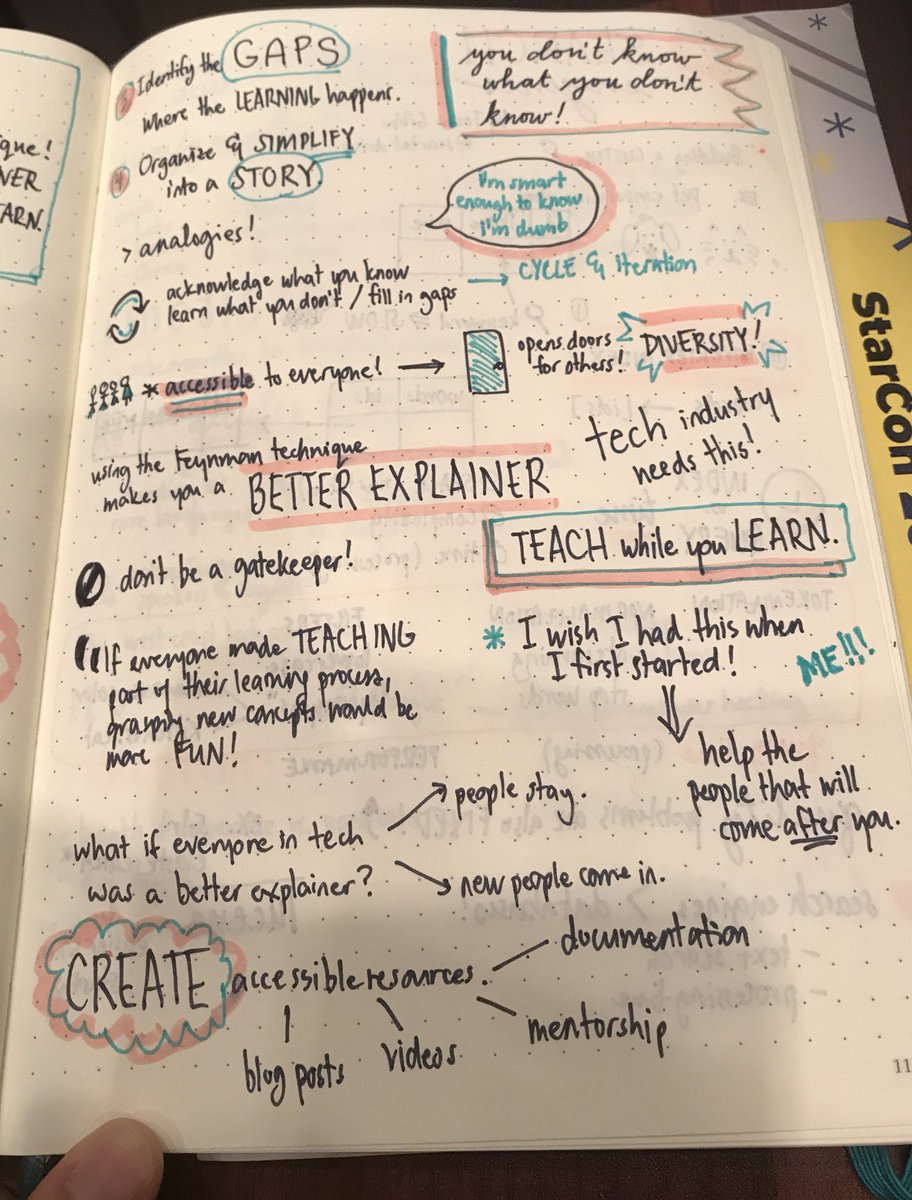 que!
VER
ARN.
③ Identify the GAPS
where the LEARNING happens.
you don't know
what you don't
know!
④ Organize & SIMPLIFY
into a STORY.
I'm smart
enough to know
i'm dumb
> analogies!
acknowledge what you know
learn what you don't / fill in gaps
→ CYCLE & iteration
* accessible to everyone! →
opens doors
for others!
DIVERSITY!
tech industry
needs this!
using the Feynman technique
makes you a BETTER EXPLAINER
TEACH while you LEARN.
don't be a gatekeeper!
"If everyone made TEACHING
part of their learning process,
grasping new concepts would be
more FUN!
* I wish I had this when
I first started!
ME!!!
help the
people that will
come after you.
what if everyone in tech
was a better explainer?
people stay.
new people come in.
CREATE accessible resources.
documentation
mentorship
videos
blog posts
11
StarCon